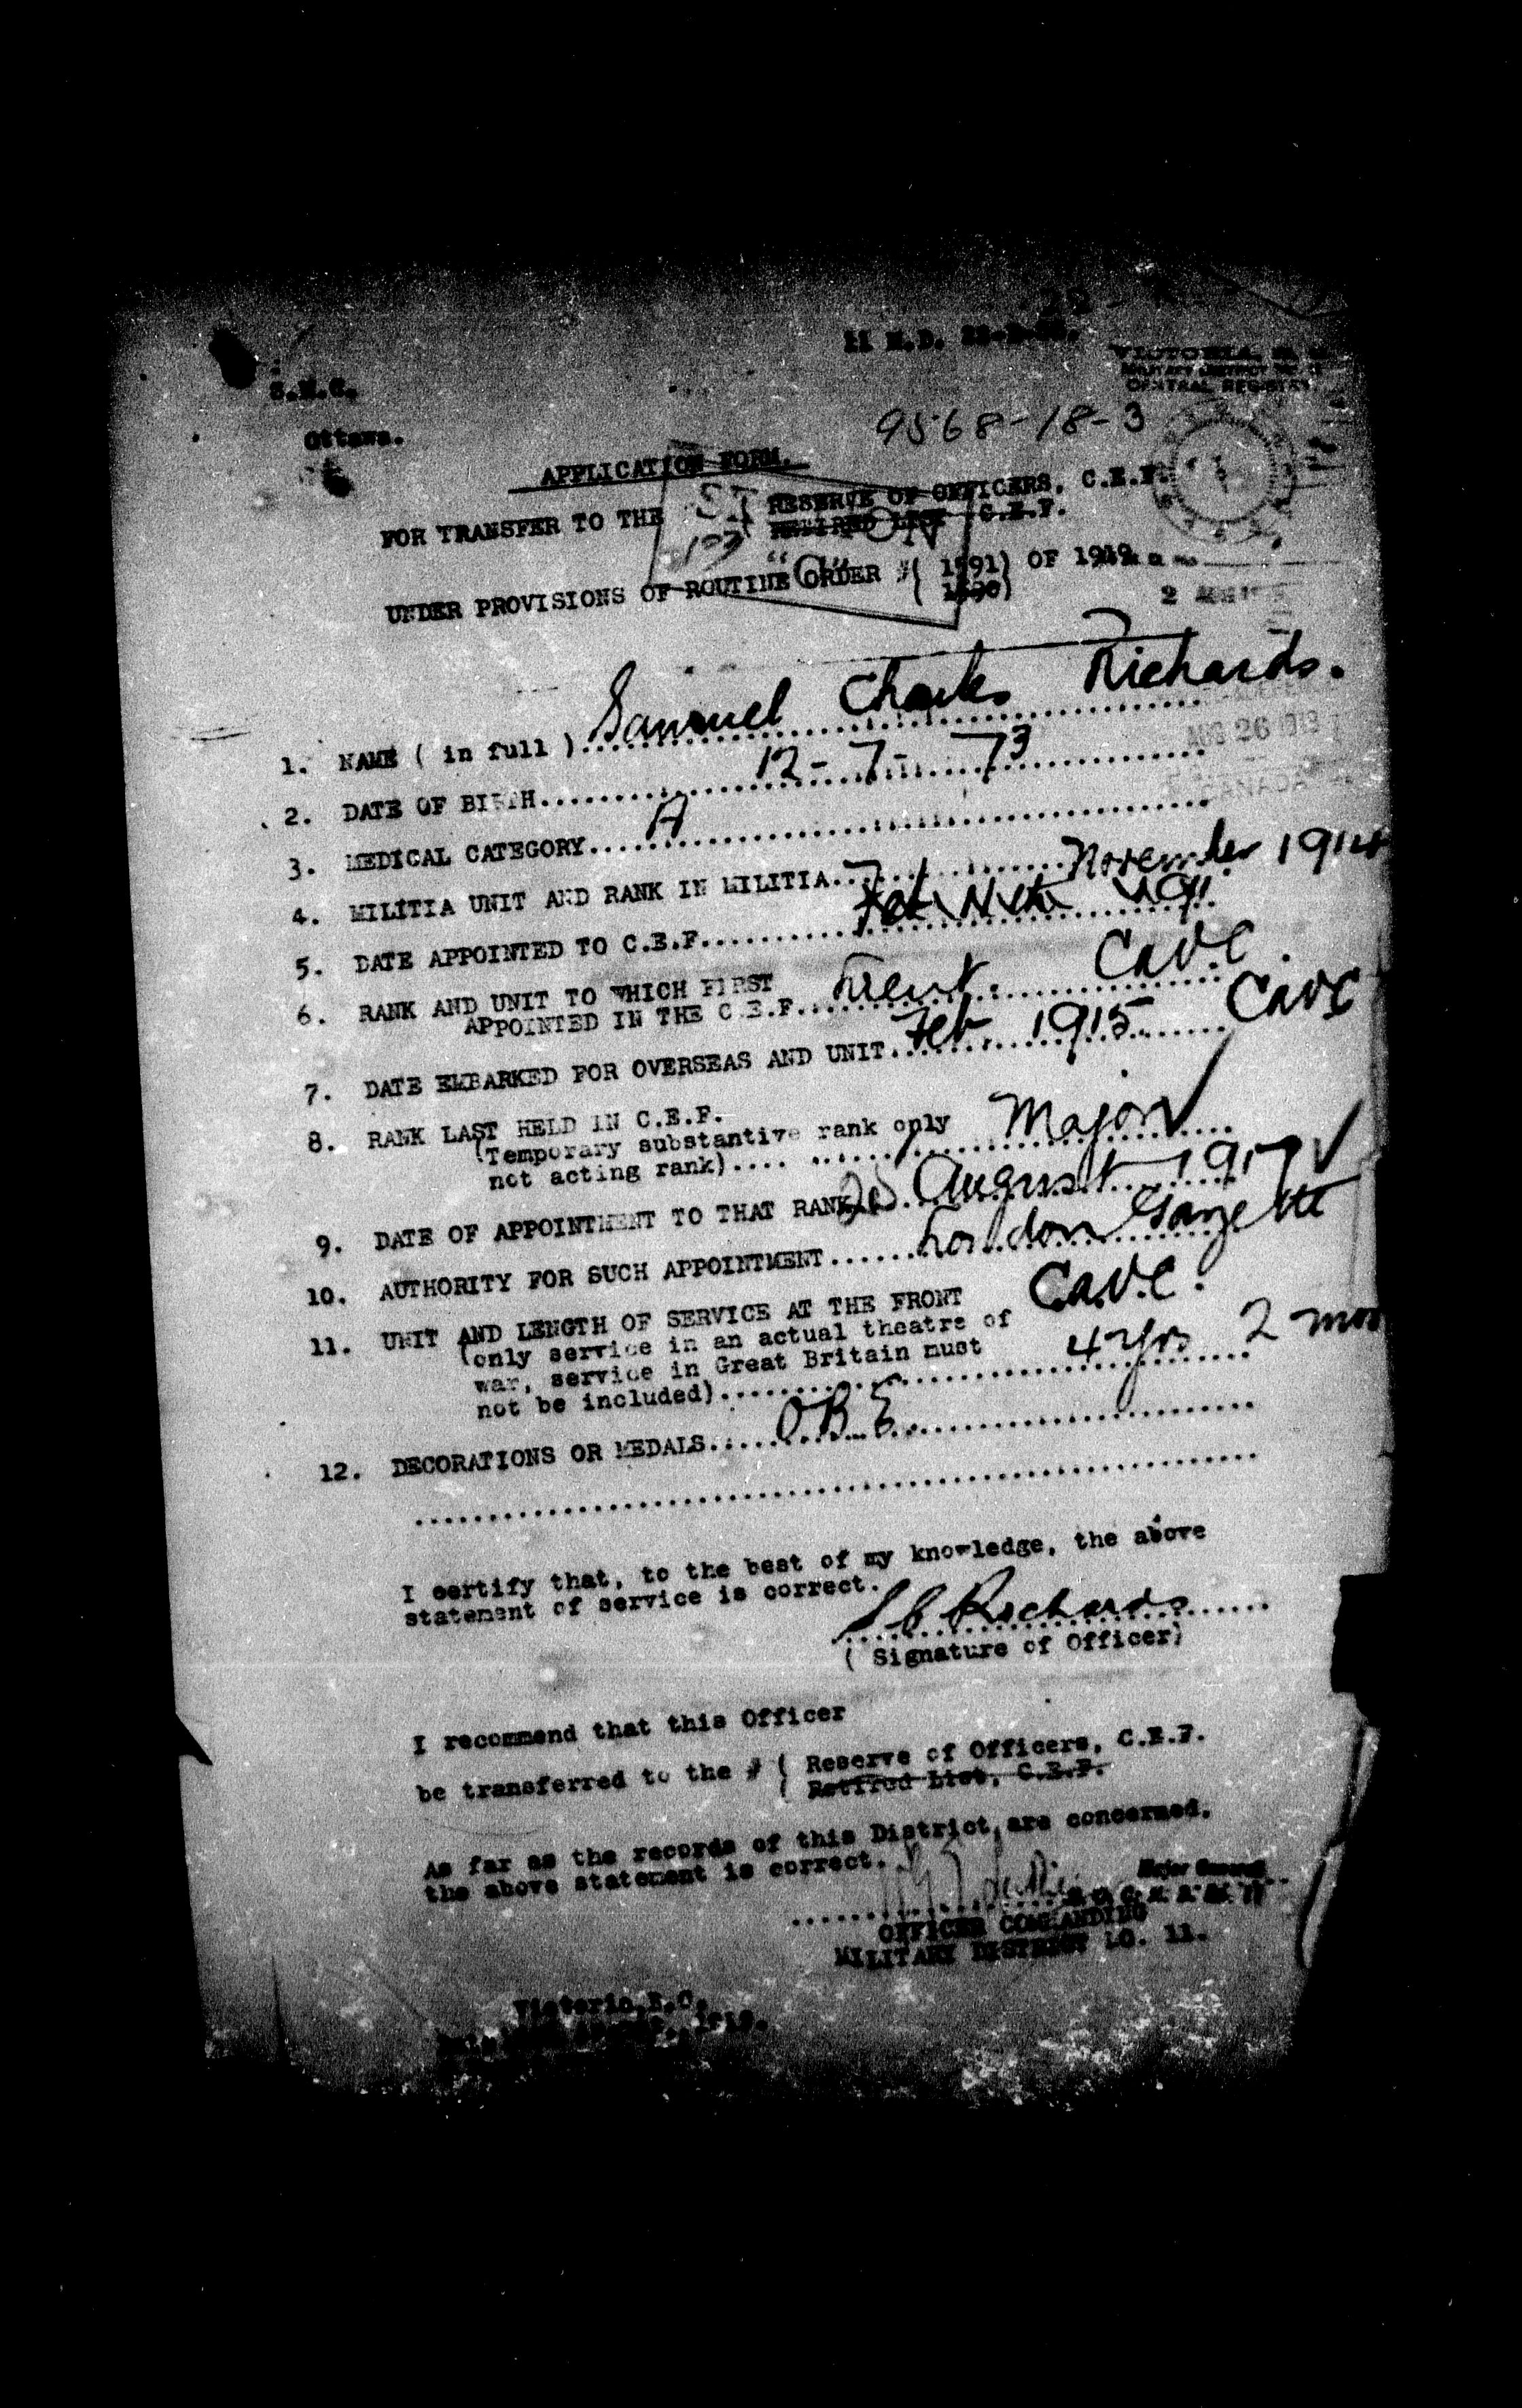 11 M.D.
VICTORIA, B.C.
MILITARY DISTRICT NO. 11
CENTRAL REGISTRY
Ottawa.
9568-18-3
APPLICATION FORM.
FOR TRANSFER TO THE ( RESERVE OF OFFICERS, C.E.F.
RETIRED LIST C.E.F.
UNDER PROVISIONS OF ROUTINE ORDER #( 1591) OF 1919
"C"
2 AUG
1. NAME ( in full ) Samuel Charles Richards.
AUG 26 1919
CANADA
2. DATE OF BIRTH 12-7-73
3. MEDICAL CATEGORY A
4. MILITIA UNIT AND RANK IN MILITIA November 1914
5. DATE APPOINTED TO C.E.F.
6. RANK AND UNIT TO WHICH FIRST
APPOINTED IN THE C.E.F. Lieut. CAVC
7. DATE EMBARKED FOR OVERSEAS AND UNIT Feb. 1915 CAVC
8. RANK LAST HELD IN C.E.F.
(Temporary substantive rank only
not acting rank) Major
9. DATE OF APPOINTMENT TO THAT RANK August 1917
10. AUTHORITY FOR SUCH APPOINTMENT London Gazette
11. UNIT AND LENGTH OF SERVICE AT THE FRONT C.A.V.C.
(only service in an actual theatre of
war, service in Great Britain must
not be included) 4 yrs 2 mos
12. DECORATIONS OR MEDALS O B E
I certify that, to the best of my knowledge, the above
statement of service is correct.
S C Richards
( Signature of Officer)
I recommend that this Officer
be transferred to the # ( Reserve of Officers, C.E.F.
( Retired List, C.E.F.
As far as the records of this District, are concerned,
the above statement is correct.
Major General
OFFICER COMMANDING
MILITARY DISTRICT NO. 11.
Victoria, B.C.
1919.